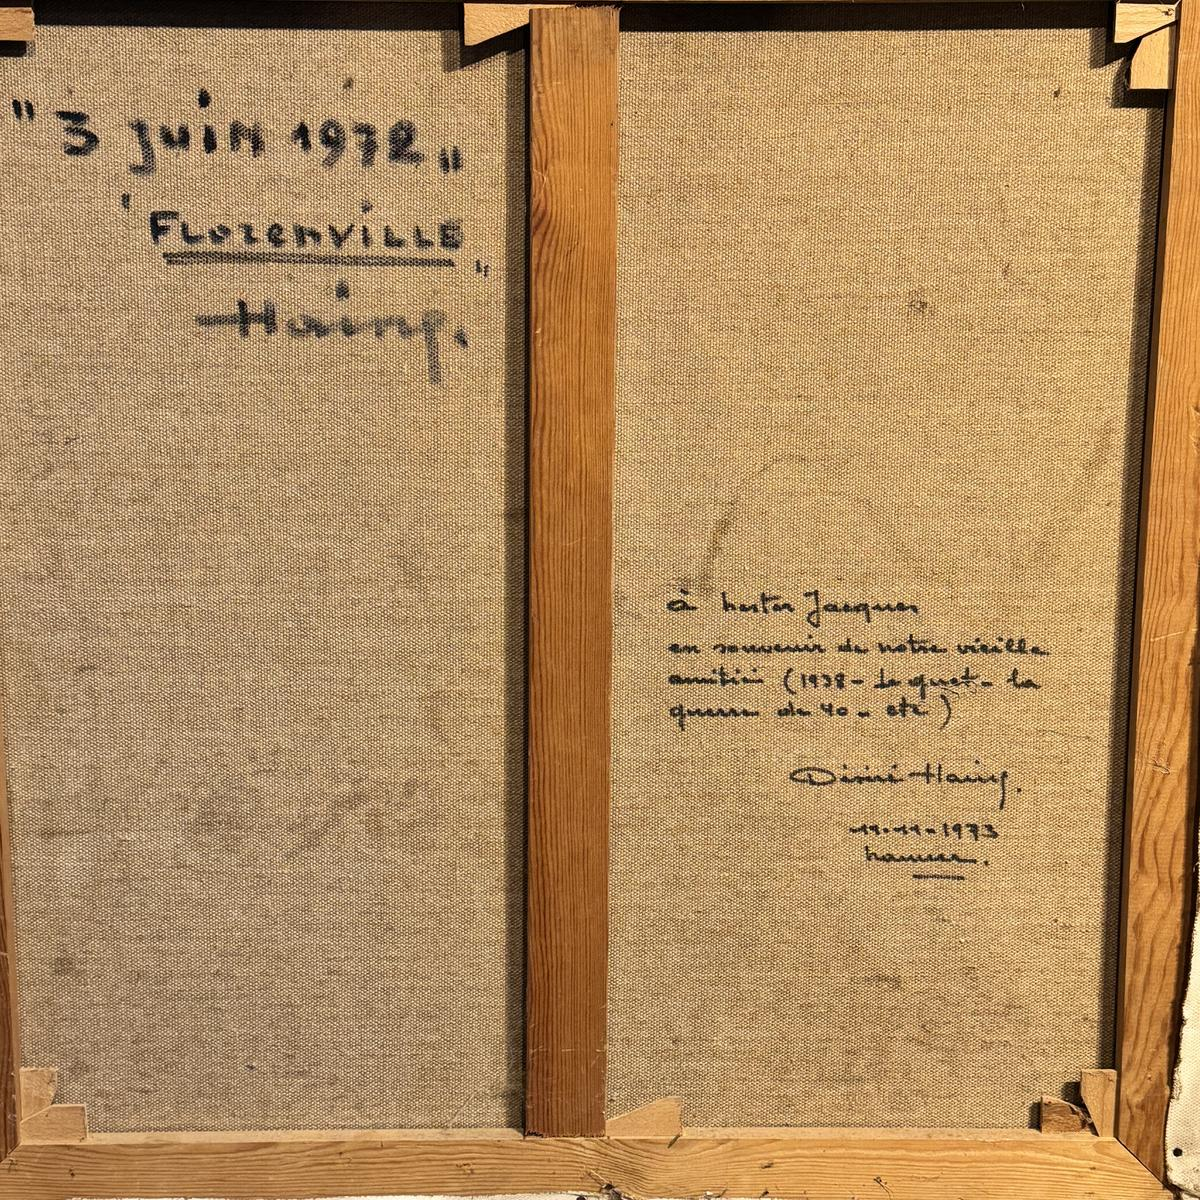 "3 juin 1972"
"FLorenviLLE"
Haine.
à Nestor Jacques
en souvenir de notre vieille
amitié (1938 - Le guet - la
guerre de 40 - etc)
Désiré Haine.
11-11-1973
namur.